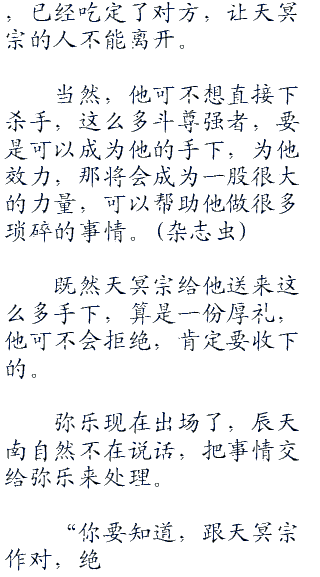 ，已经吃定了对方，让天冥
宗的人不能离开。
当然，他可不想直接下
杀手，这么多斗尊强者，要
是可以成为他的手下，为他
效力，那将会成为一股很大
的力量，可以帮助他做很多
琐碎的事情。(杂志虫)
既然天冥宗给他送来这
么多手下，算是一份厚礼，
他可不会拒绝，肯定要收下
的。
弥乐现在出场了，辰天
南自然不在说话，把事情交
给弥乐来处理。
“你要知道，跟天冥宗
作对，绝